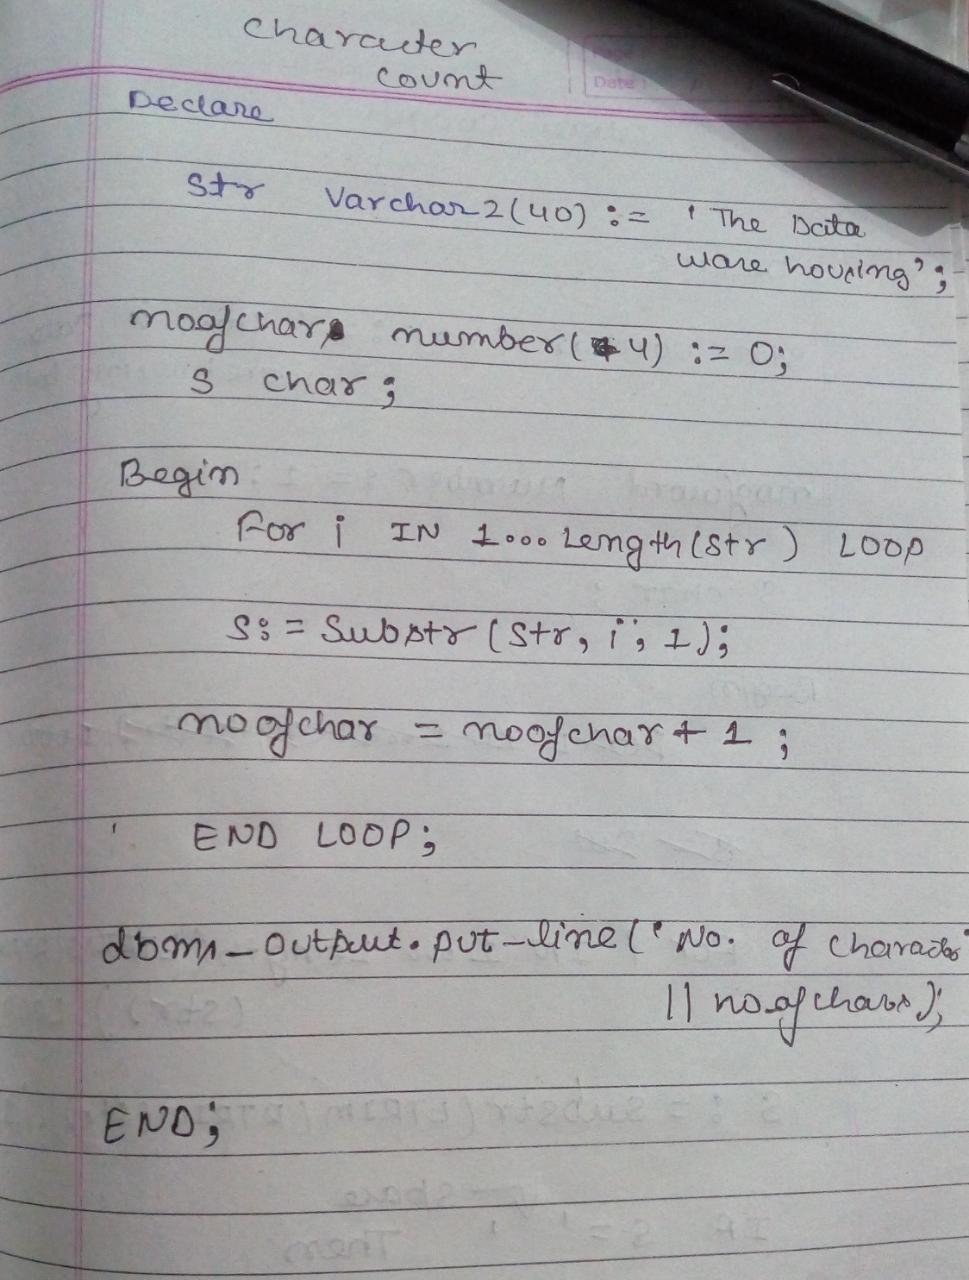 character
count
Date
Declare
Str Varchar2(40) := 'The Data
ware housing';
noofchars number(4) := 0;
s char;
Begin
For i IN 1... Length(str) LOOP
S:= Substr (Str, i, 1);
noofchar = noofchar + 1;
END LOOP;
dbms_output.put_line('No. of character'
|| noofchars);
END;